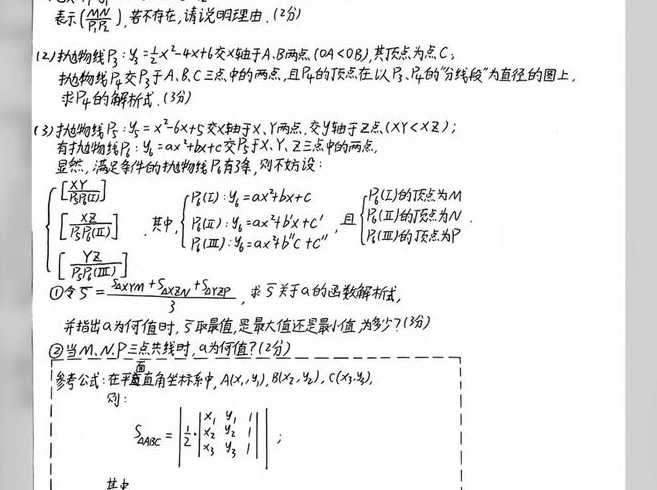 表示(MN/P₁P₂),若不存在,请说明理由.(2分)
(2)抛物线P₃:y₃=½x²-4x+6交x轴于A、B两点(OA<OB),其顶点为点C;
抛物线P₄交P₃于A、B、C三点中的两点,且P₄的顶点在以P₃、P₄的“分线段”为直径的圆上,
求P₄的解析式.(3分)
(3)抛物线P₅:y₅=x²-6x+5交x轴于X、Y两点,交y轴于Z点(XY<XZ);
有抛物线P₆:y₆=ax²+bx+c交P₅于X、Y、Z三点中的两点,
显然,满足条件的抛物线P₆有3条,则不妨设:
{[XY/P₅P₆(I)] [XZ/P₅P₆(II)] [YZ/P₅P₆(III)] .其中,{P₆(I):y₆=ax²+bx+c P₆(II):y₆=ax²+b'x+c' P₆(III):y₆=ax²+b"c+c" ,且{P₆(I)的顶点为M P₆(II)的顶点为N P₆(III)的顶点为P .
①令s̄=(S△XYM+S△XZN+S△YZP)/3,求s̄关于a的函数解析式,
并指出a为何值时,s̄取最值,是最大值还是最小值,为多少?(3分)
②当M、N、P三点共线时,a为何值?(2分)
参考公式:在平面直角坐标系中,A(x₁,y₁),B(x₂,y₂),C(x₃,y₃),
则:
S△ABC=|½·|x₁ y₁ 1
x₂ y₂ 1
x₃ y₃ 1||;
其中